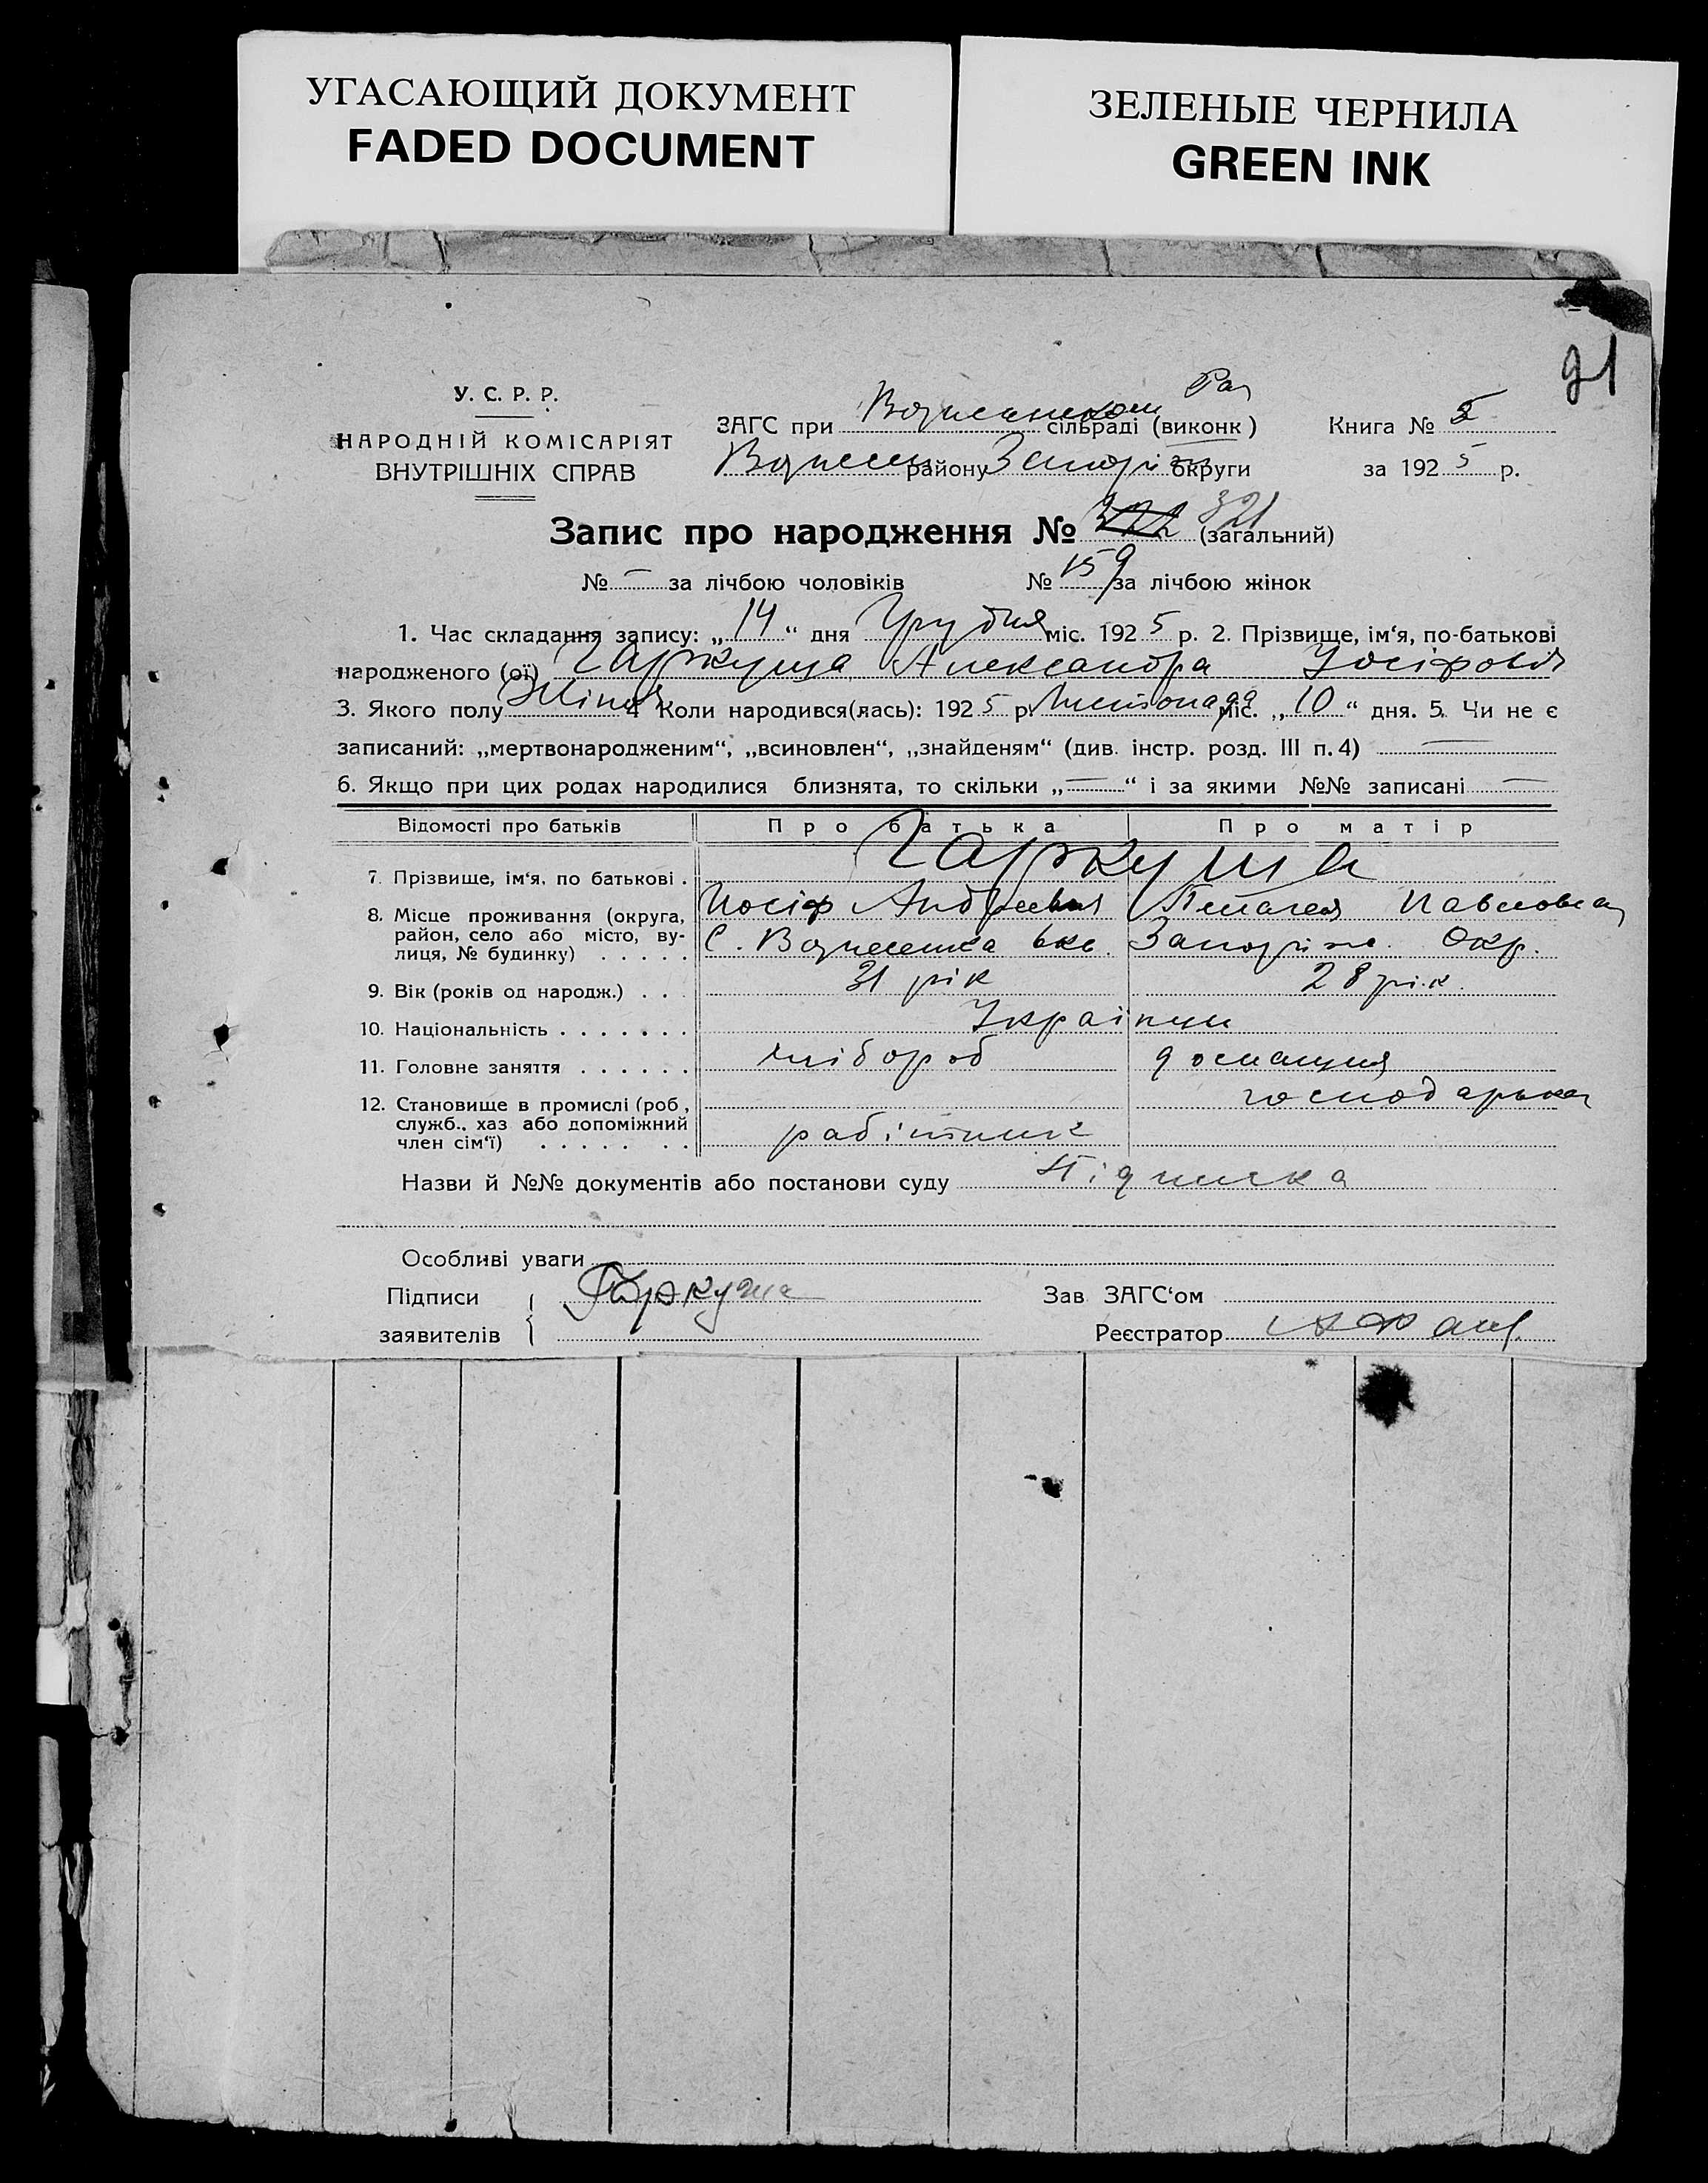 УГАСАЮЩИЙ ДОКУМЕНТ
FADED DOCUMENT
ЗЕЛЕНЫЕ ЧЕРНИЛА
GREEN INK
91
У. С. Р. Р.
НАРОДНІЙ КОМІСАРІЯТ
ВНУТРІШНІХ СПРАВ
ЗАГС при сільраді (виконк)
району округи
Книга № 5
за 1925 р.
Запис про народження № 321 (загальний)
№ — за лічбою чоловіків № 159 за лічбою жінок
1. Час складання запису: „14“ дня Грудня міс. 1925 р. 2. Прізвище, ім‘я, по-батькові
народженого (ої) Гаркуша Александра Йосіфовія
3. Якого полу Жіноч 4 Коли народився(лась): 1925 р. Листопада міс. „10“ дня. 5. Чи не є
записаний: „мертвонародженим“, „всиновлен“, „знайденям“ (див. інстр. розд. III п. 4) —
6. Якщо при цих родах народилися близнята, то скільки „—“ і за якими №№ записані —
Відомості про батьків Про батька Про матір
7. Прізвище, ім‘я, по батькові . Гаркуша
Иосіф Андреевич Пелагея Павловна
8. Місце проживання (округа,
район, село або місто, ву-
лиця, № будинку) . . . . . С. Вознесенка Запоріж. Окр.
9. Вік (років од народж.) . . . 31 рік 28 рік.
10. Національність . . . . . . . Українци
11. Головне заняття . . . . . . хлібороб домашня
господарька
12. Становище в промислі (роб.,
служб., хаз або допоміжний
член сім‘ї) . . . . . . . робітник
Назви й №№ документів або постанови суду Підписка
Особливі уваги
Підписи
заявителів Гаркуша
Зав ЗАГС‘ом
Реєстратор